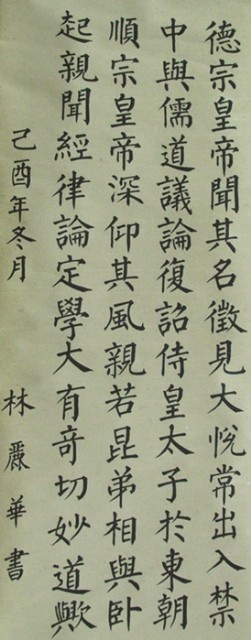 德宗皇帝聞其名徵見大悅常出入禁
中與儒道議論復詔侍皇太子於東朝
順宗皇帝深仰其風親若昆弟相與卧
起親聞經律論定學大有奇切妙道歟
己酉年冬月 林嚴華書